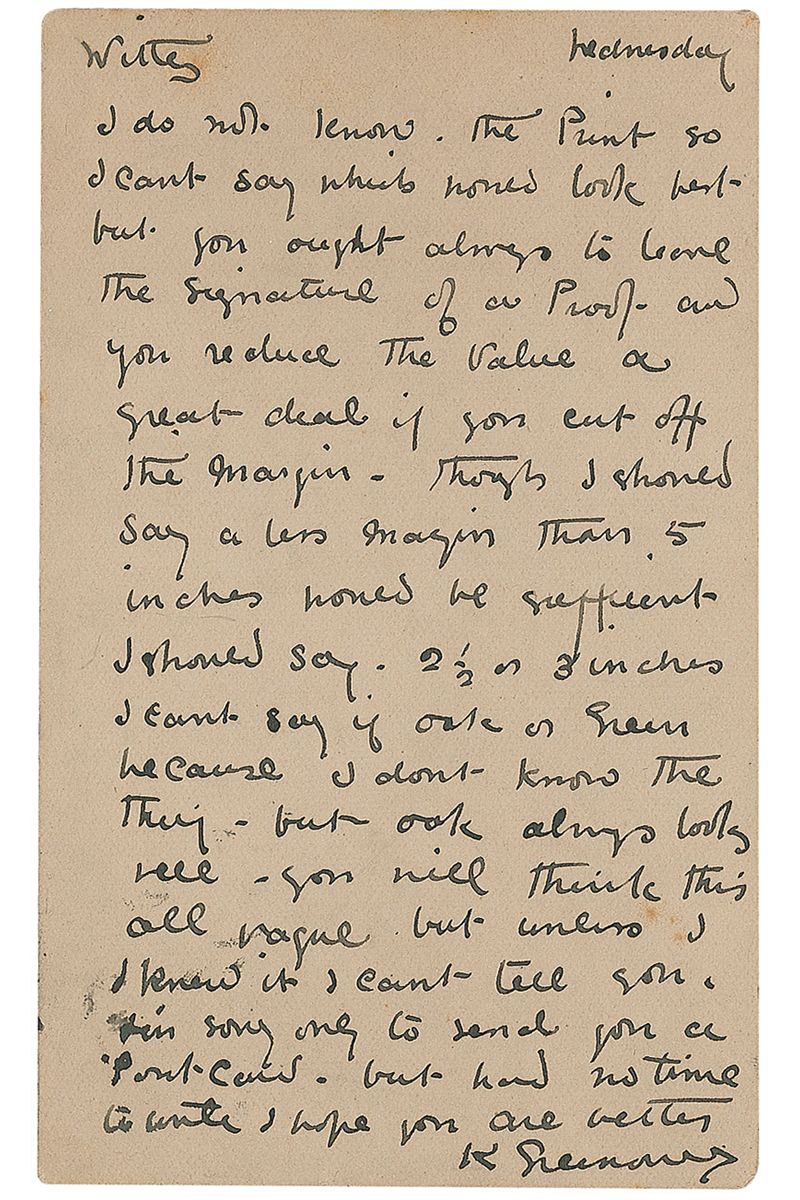 Witley Wednesday
I do not know. the Print so
I cant say which would look best
but you ought always to leave
the Signature of a Proof. and
you reduce the value a
great deal if you cut off
the Margin - though I should
say a less Margin than 5
inches would be sufficient
I should say. 2½ or 3 inches
I cant say if oak or Green
because I dont know the
thing - but oak always looks
well - you will think this
all vague but unless I
I knew it I cant tell you.
Im sorry only to send you a
Post Card. but had no time
to write I hope you are better
K Greenaway